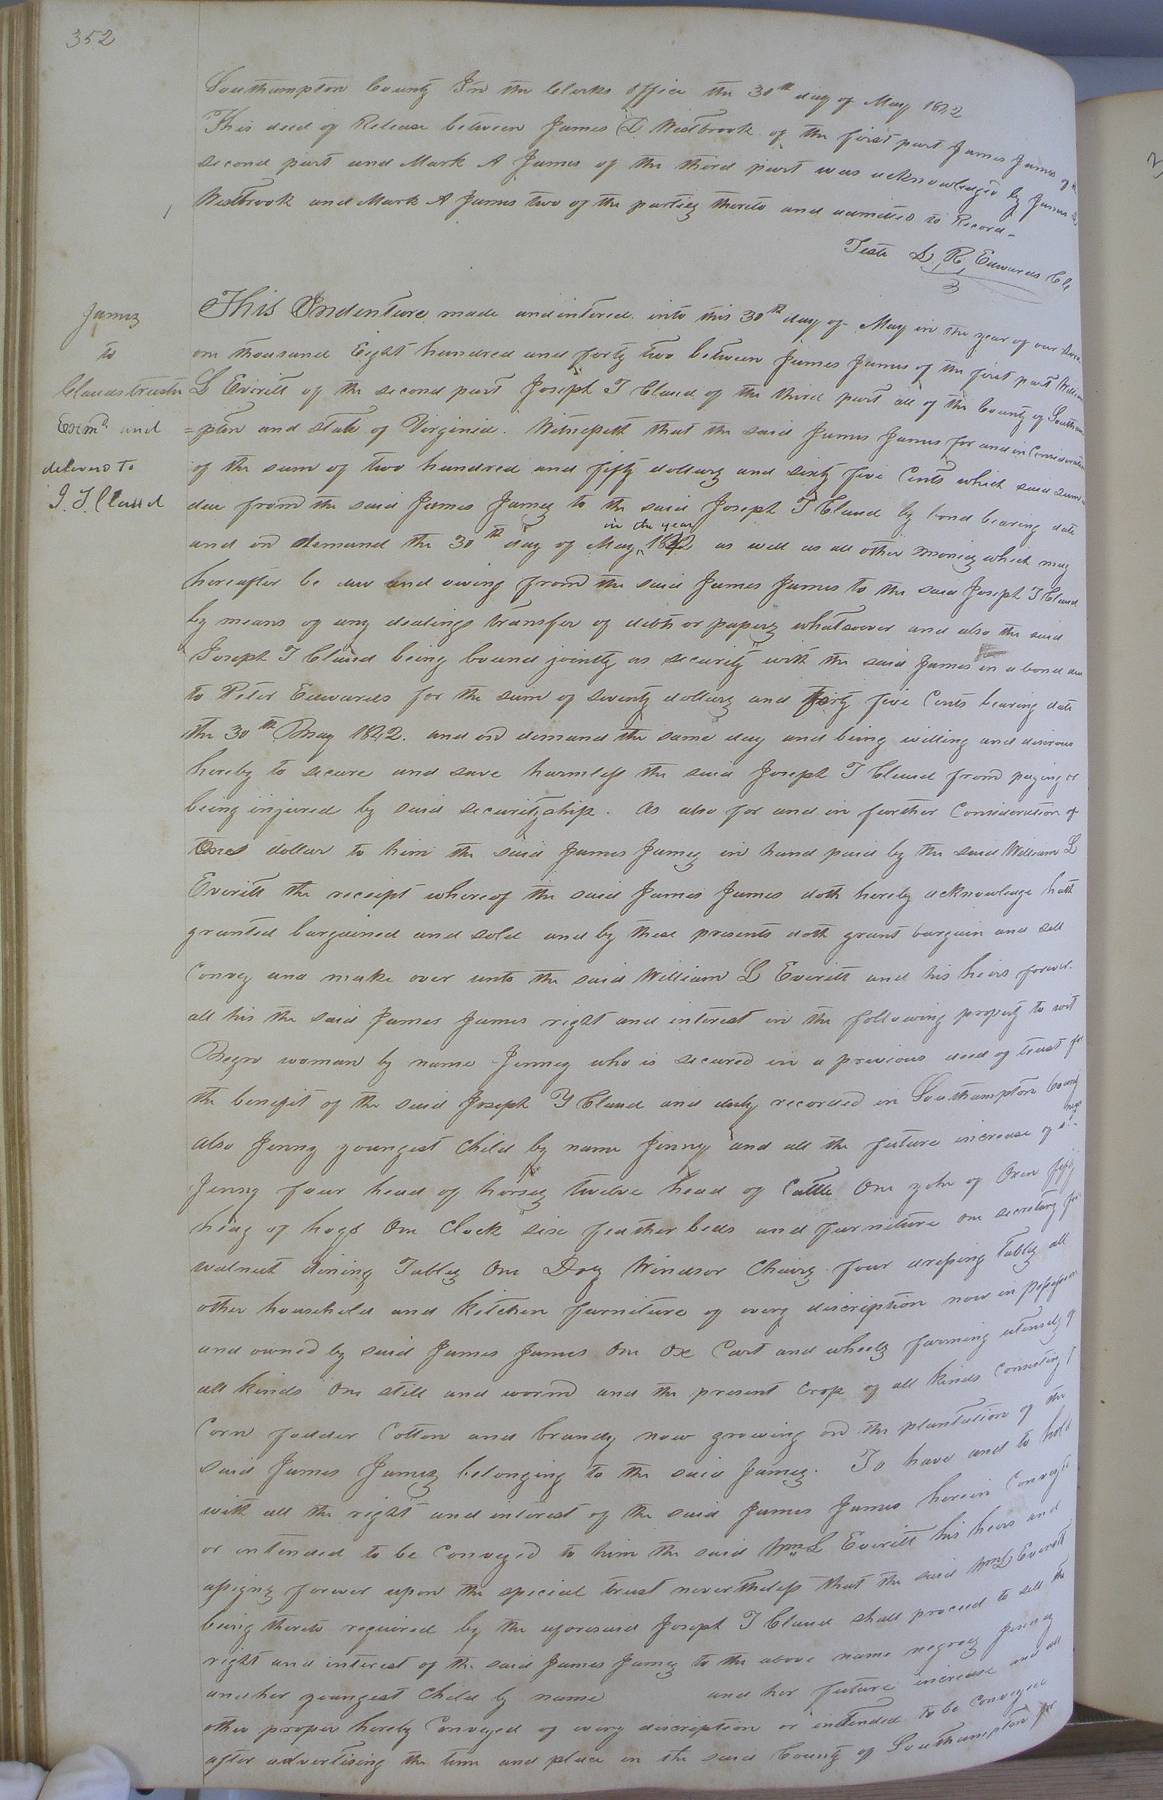 352
Southampton County In the Clerks office the 30th day of May 1842
This deed of Release between James D Westbrook of the first part James James of the
second part and Mark A James of the third part was acknowledged by James D
Westbrook and Mark A James two of the parties thereto and admitted to Record -
Teste L R Edwards Clk
James
to
Clauds trustee
Exmd and
delivered to
J. T. Claud
This Indenture made and intered into this 30th day of May in the year of our
one thousand Eight hundred and forty two between James James of the first part William
L Everitt of the second part Joseph T Claud of the third part all of the County of Southam
=pton and state of Virginia. Witnesseth that the said James James for and in Consideration
of the sum of two hundred and fifty dollars and sixty five Cents which said sum is
due from the said James James to the said Joseph T Claud by bond bearing date
and on demand the 30th day of May in the year 1842 as well as all other monies which may
hereafter be due and owing from the said James James to the said Joseph T Claud
by means of any dealings transfer of debts or papers whatsoever and also the said
Joseph T Claud being bound jointly as security with the said James in a bond due
to Peter Edwards for the sum of seventy dollars and forty five Cents bearing date
the 30th May 1842. and on demand the same day and being willing and desirous
hereby to secure and save harmless the said Joseph T Claud from paying or
being injured by said securityship. As also for and in further Consideration of
One dollar to him the said James James in hand paid by the said William L
Everitt the receipt whereof the said James James doth hereby acknowledge hath
granted bargained and sold and by these presents doth grant bargain and sell
Convey and make over unto the said William L Everitt and his heirs forever.
all his the said James James right and interest in the following property to wit
Negro woman by name Jenney who is secured in a previous deed of trust for
the benefit of the said Joseph T Claud and duly recorded in Southampton County
also Jenny youngest Child by name Jinny and all the future increase of sd
Jenny four head of horses twelve head of Cattle One yoke of Oxen fifty
head of hogs One Clock six feather beds and furniture one secretary four
walnut dining Tables One Doz Windsor Chairs four dressing Tables all
other household and Kitchen furniture of every discription now in possession
and owned by said James James One Ox Cart and wheels farming utensils of
all kinds One still and worm and the present Crop of all Kinds Consisting of
Corn fodder Cotton and brandy now growing on the plantation of the
said James James belonging to the said James. To have and to hold
with all the right and interest of the said James James herein Conveyed
or intended to be Conveyed to him the said Wm L Everitt his heirs and
assigns forever upon the special trust nevertheless that the said Wm L Everitt
being thereto required by the aforesaid Joseph T Claud shall proceed to sell the
right and interest of the said James James to the above name negroes Jenny
and her youngest Child by name and her future increase and all
other proper hereby Conveyed of every description or intended to be Conveyed
after advertising the time and place in the said County of Southampton for